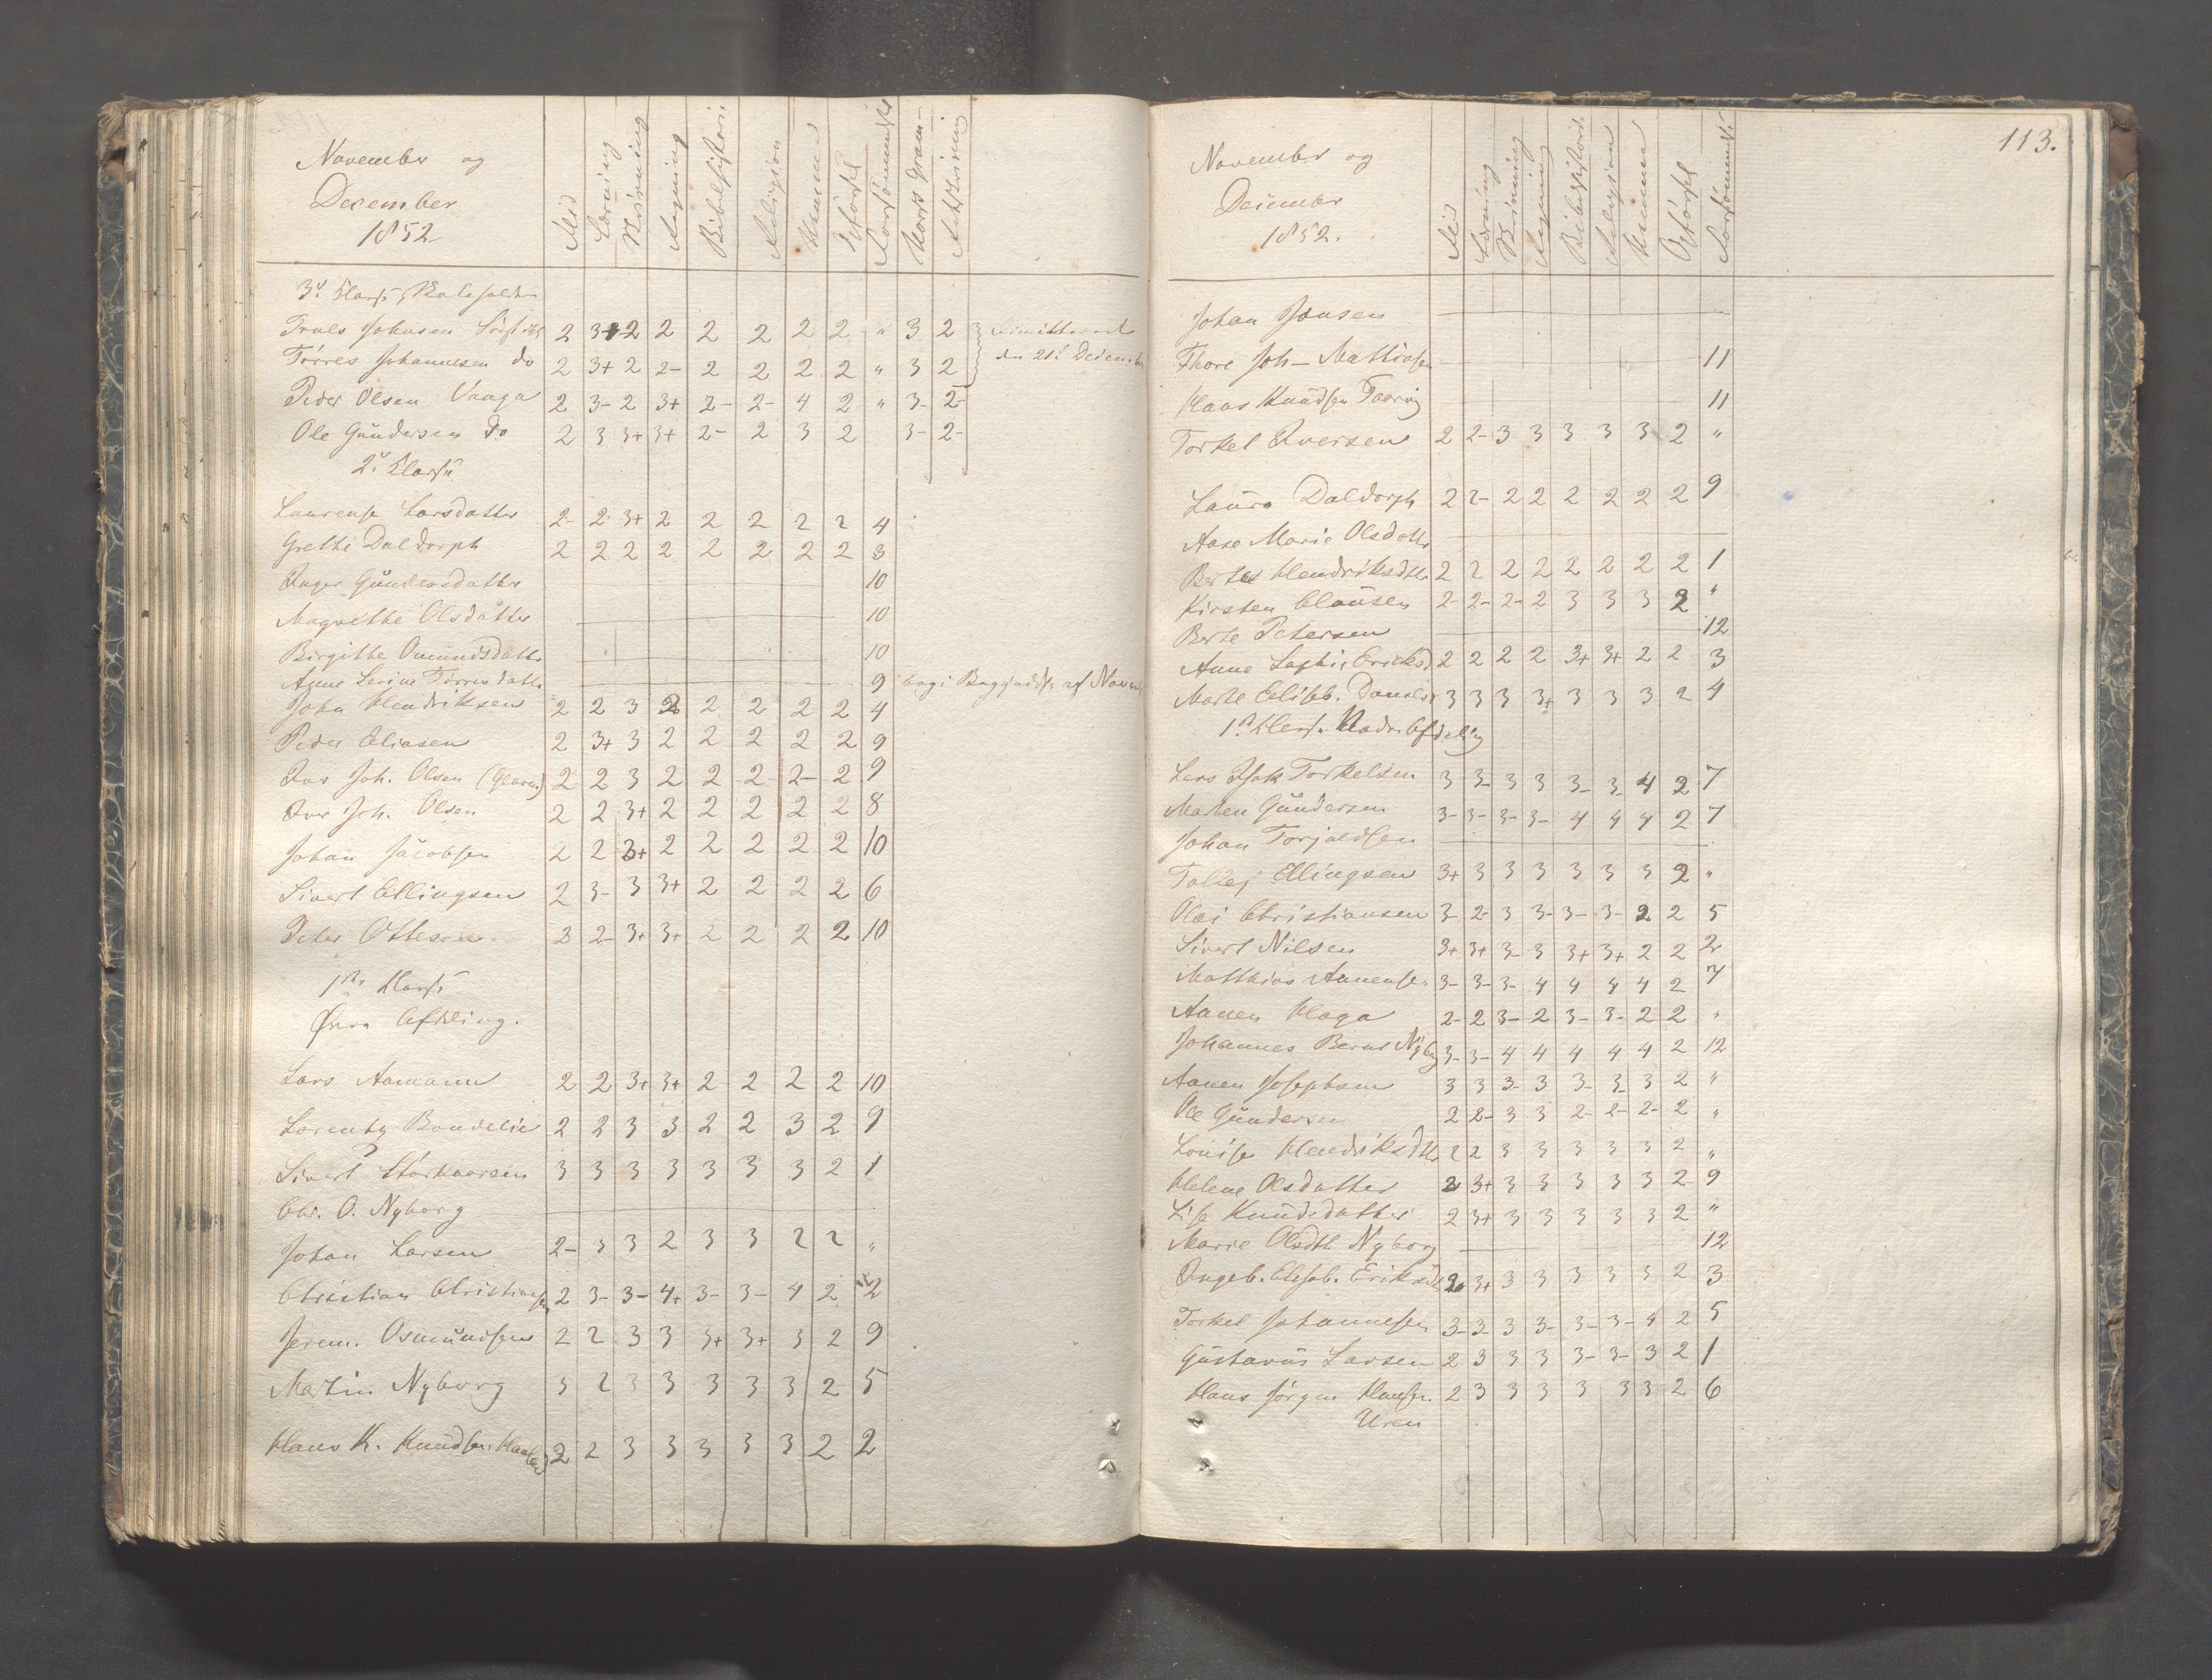 November og
December
1852
Flid
Læsning
Skrivning
Regning
Bibelhistorie
Religion
Kunns
Opførsel
Forsømmelse
Norsk Gram-
Retskrivning
3d Klasse
Truls Johnsen 2 3+ 2 2 2 2 2 2 " 3 2
Tørres Johannesen do 2 3+ 2 2- 2 2 2 2 " 3 2
den 21d December
Peder Olsen Vaaga 2 3- 2 3+ 2- 2- 4 2 " 3- 2-
Ole Gundersen do 2 3 3+ 3+ 2- 2 3 2 3- 2-
2d Klasse
Laurense Larsdatter 2- 2 3+ 2 2 2 2 2 4
Grethe Daldorph 2 2 2 2 2 2 2 2 3
Inger Gundersdatter 10
Magrethe Olsdatter 10
Birgithe Omundsdattr 10
Anne Serine Tørresdattr 9
John Hendriksen 2 2 3 2 2 2 2 2 4
Peder Eliasen 2 3+ 3 2 2 2 2 2 9
Iver Joh. Olsen 2 2 3 2 2 2 2- 2 9
Iver Joh. Olsen 2 2 3+ 2 2 2 2 2 8
Johan Jacobsen 2 2 3+ 2 2 2 2 2 10
Sivert Ellingsen 2 3- 3 3+ 2 2 2 2 6
Peter Ottesen 2 2- 3+ 3+ 2 2 2 2 10
1ste Klasse
Øvre Afdeling.
Lars Aamann 2 2 3+ 3+ 2 2 2 2 10
Lorentz Bondelie 2 2 3 3 2 2 3 2 9
Sivert Størkaarsen 3 3 3 3 3 3 3 2 1
Chr. O. Nyborg
Johan Larsen 2- 3 3 2 3 3 2 2 "
Christian Christiansen 2 3- 3- 4+ 3- 3- 4 2 2
Jerem. Osmundsen 2 2 3 3 3+ 3+ 3 2 9
Martin Nyborg 3 2 3 3 3 3 3 2 5
Hans K. Knudsen 2 2 3 3 3 3 3 2 2
113.
November og
December
1852.
Flid
Læsning
Skrivning
Regning
Bibelhistorie
Religion
Kunns
Opførsel
Forsømmelse
Johan Jansen
Thore Joh- Mathiasen 11
Hans Knudsen 11
Torkel Iversen 2 2- 3 3 3 3 3 2 "
Laura Daldorph 2 2- 2 2 2 2 2 2 9
Aase Marie Olsdattr
Berte Hendriksdttr 2 2 2 2 2 2 2 2 1
Kirsten Clausen 2- 2- 2- 2 3 3 3 2 "
Berte Petersen 12
Anne Sophie Ericksd 2 2 2 2 3+ 3+ 2 2 3
Marte Elisb. Danielsd 3 3 3 3+ 3 3 3 2 4
1ste Klasse Nedre Afdeling
Lars Isak Torkelsen 3 3- 3 3 3- 3- 4 2 7
Marten Gundersen 3- 3- 3- 3- 4 4 4 2 7
Johan Torjuldsen
Tollej Ellingsen 3+ 3 3 3 3 3 3 2 "
Olai Christiansen 3- 2- 3 3- 3- 3- 2 2 5
Sivert Nilsen 3+ 3+ 3- 3 3+ 3+ 2 2 2
Matthias Aanensen 3- 3- 3- 4 4 4 4 2 7
Aanen Haga 2- 2 3- 2 3- 3- 2 2 "
Johannes Bernt Nyborg 3- 3- 4 4 4 4 4 2 12
Aanen Josephsen 3 3 3- 3 3- 3- 3 2 "
Ole Gundersen 2 2- 3 3 2- 2- 2- 2 "
Louise Hendriksdttr 2 2 3 3 3 3 3 2 "
Helene Olsdatter 2 3+ 3 3 3 3 3 2 9
Lise Knudsdatter 2 3+ 3 3 3 3 3 2 "
Marie Olsdtr Nyborg 12
Ingeb. Elisab. Eriksdtr 2 3+ 3 3 3 3 3 2 3
Torkel Johannesen 3- 3- 3 3- 3- 3- 4 2 5
Gustavus Larsen 2 3 3 3 3- 3- 3 2 1
Hans Jørgen Hansen 2 3 3 3 3 3 3 2 6
Uren